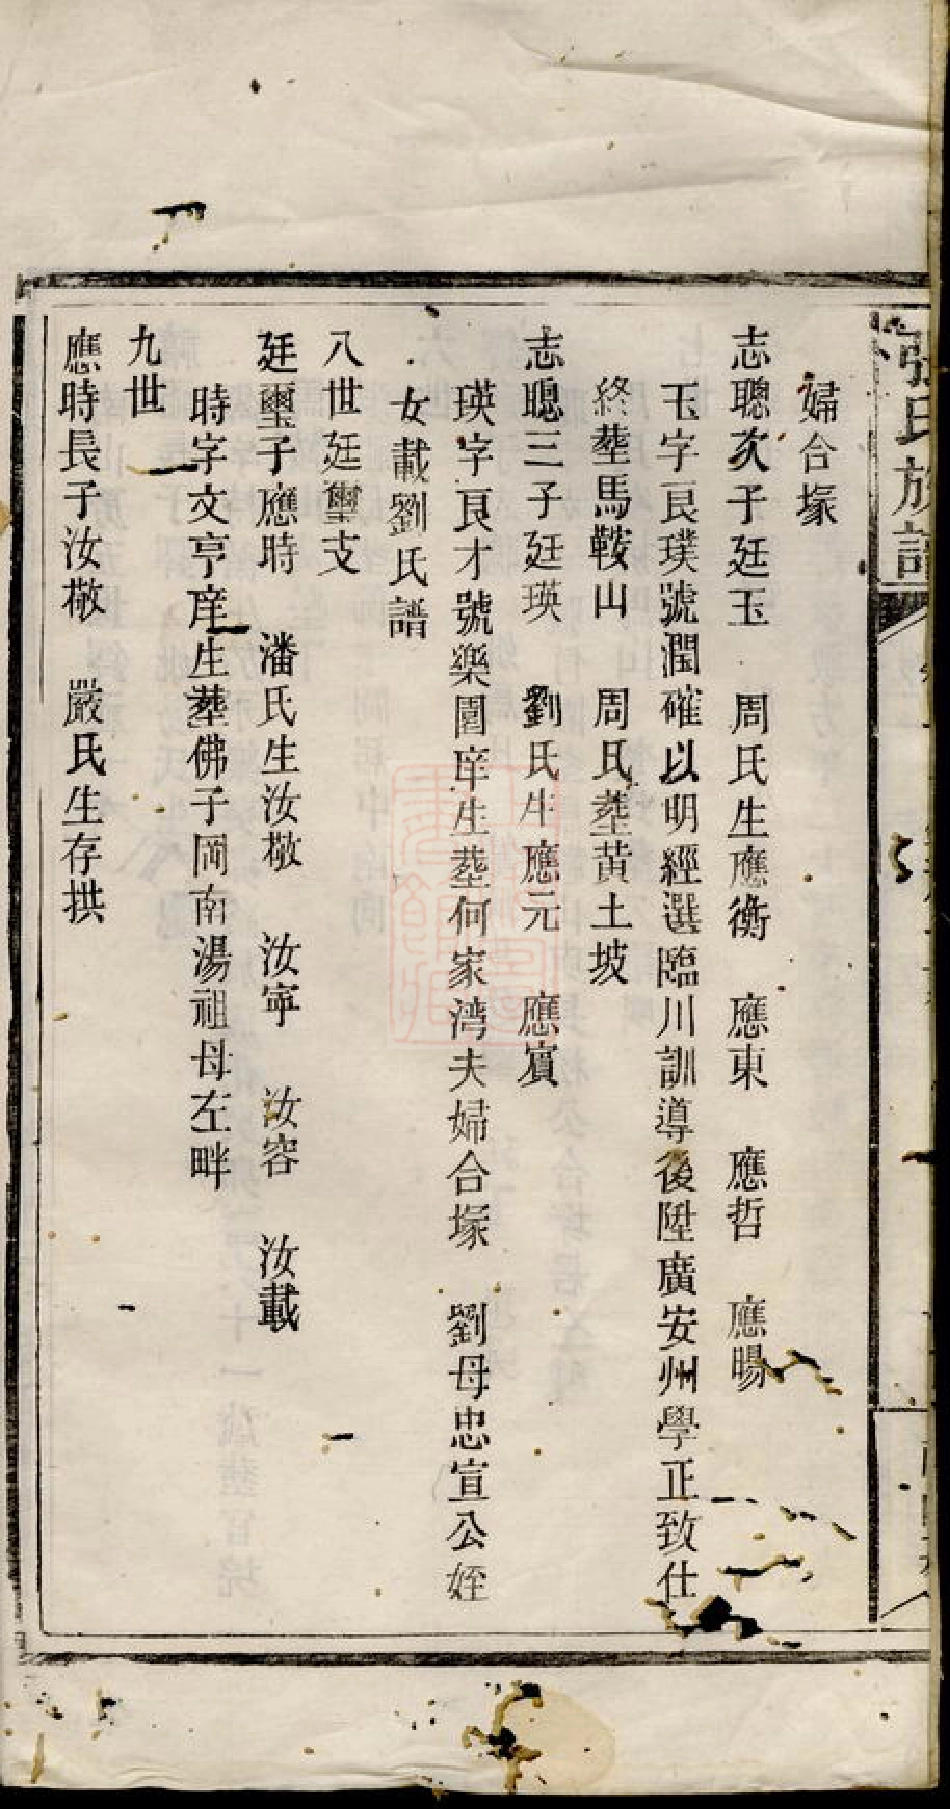 張氏族譜
婦合塚
志聰次子廷玉　周氏生應衡　應東　應哲　應暘
玉字艮璞號潤確以明經選臨川訓導後陞廣安州學正致仕
終塟馬鞍山　周氏塟黃土坡
志聰三子廷瑛　劉氏生應元　應賓
瑛字艮才號樂園庠生塟何家湾夫婦合塚　劉母忠宣公姪
女載劉氏譜
八世廷璽支
廷璽子應時　潘氏生汝敬　汝寧　汝容　汝載
時字文亨庠生塟佛子岡南湯祖母左畔
九世
應時長子汝敬　嚴氏生存拱